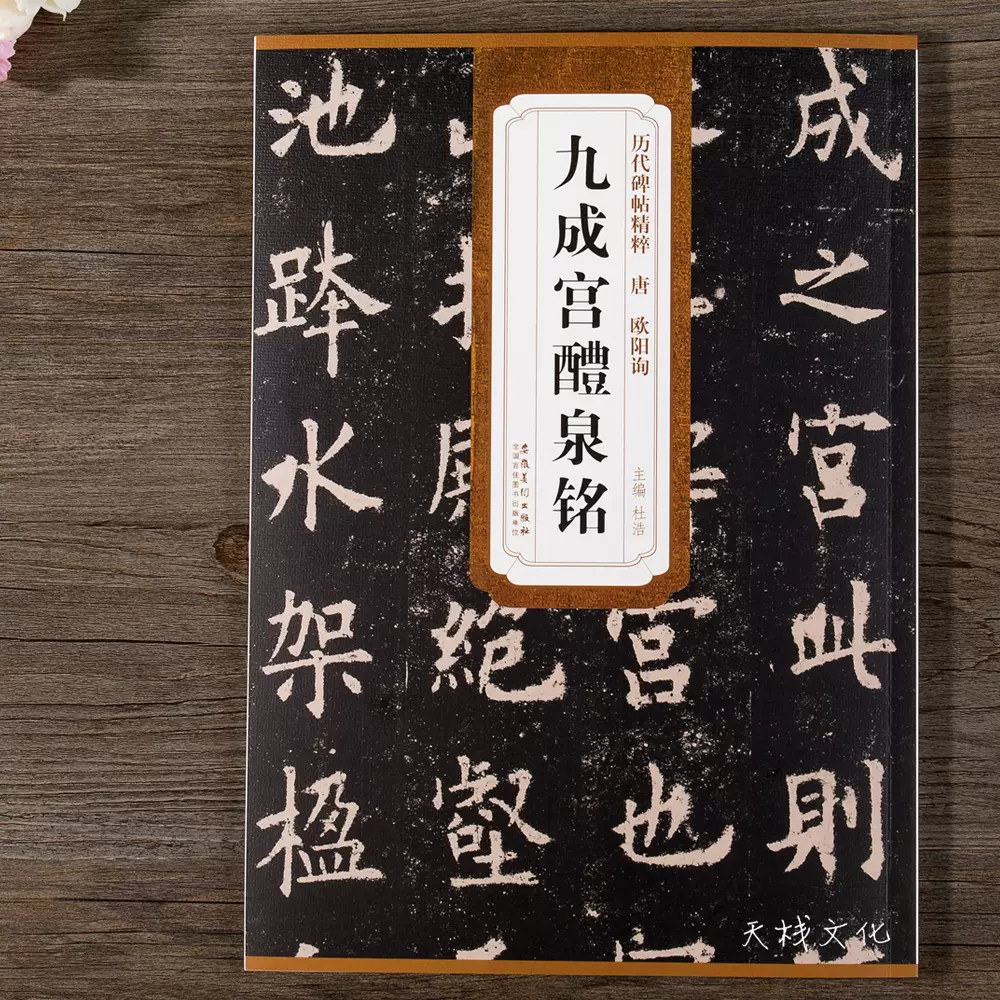 历代碑帖精粹 唐 欧阳询
主编 杜浩
九成宫醴泉铭
安徽美术出版社
全国百佳图书出版单位
成之宮此則
宮也
絕壑
池跨水架楹
天栈文化